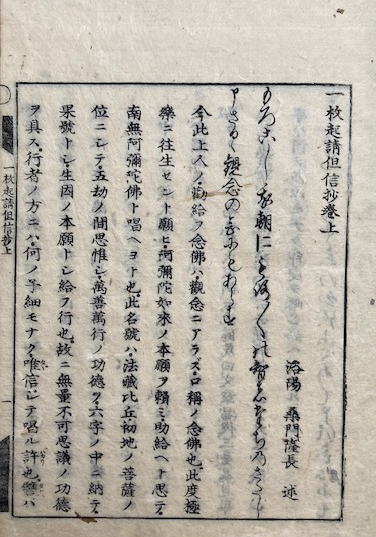 一枚起請但信抄巻上
洛陽 桑門隆長 述
もろこし我朝にもろ〱の智者たちのさたし
申さるゝ觀念の念にもあらす
今此上人ノ勸給フ念佛ハ觀念ニアラズ口稱ノ念佛也此度極
樂ニ往生セント願ヒ阿彌陀如來ノ本願ヲ賴ミ助給ヘト思テ
南無阿彌陀佛ト唱ヘヨト也此名號ハ法藏比丘初地ノ菩薩ノ
位ニシテ五劫ノ間思惟シ萬善萬行ノ功德ヲ六字ノ中ニ納テ
果號トシ生因ノ本願トシ給フ行也故ニ無量不可思議ノ功德
ヲ具ス行者ノ方ニハ何ノ子細モナク唯信シテ唱ル許也譬ハ
一枚起請但信抄上 一